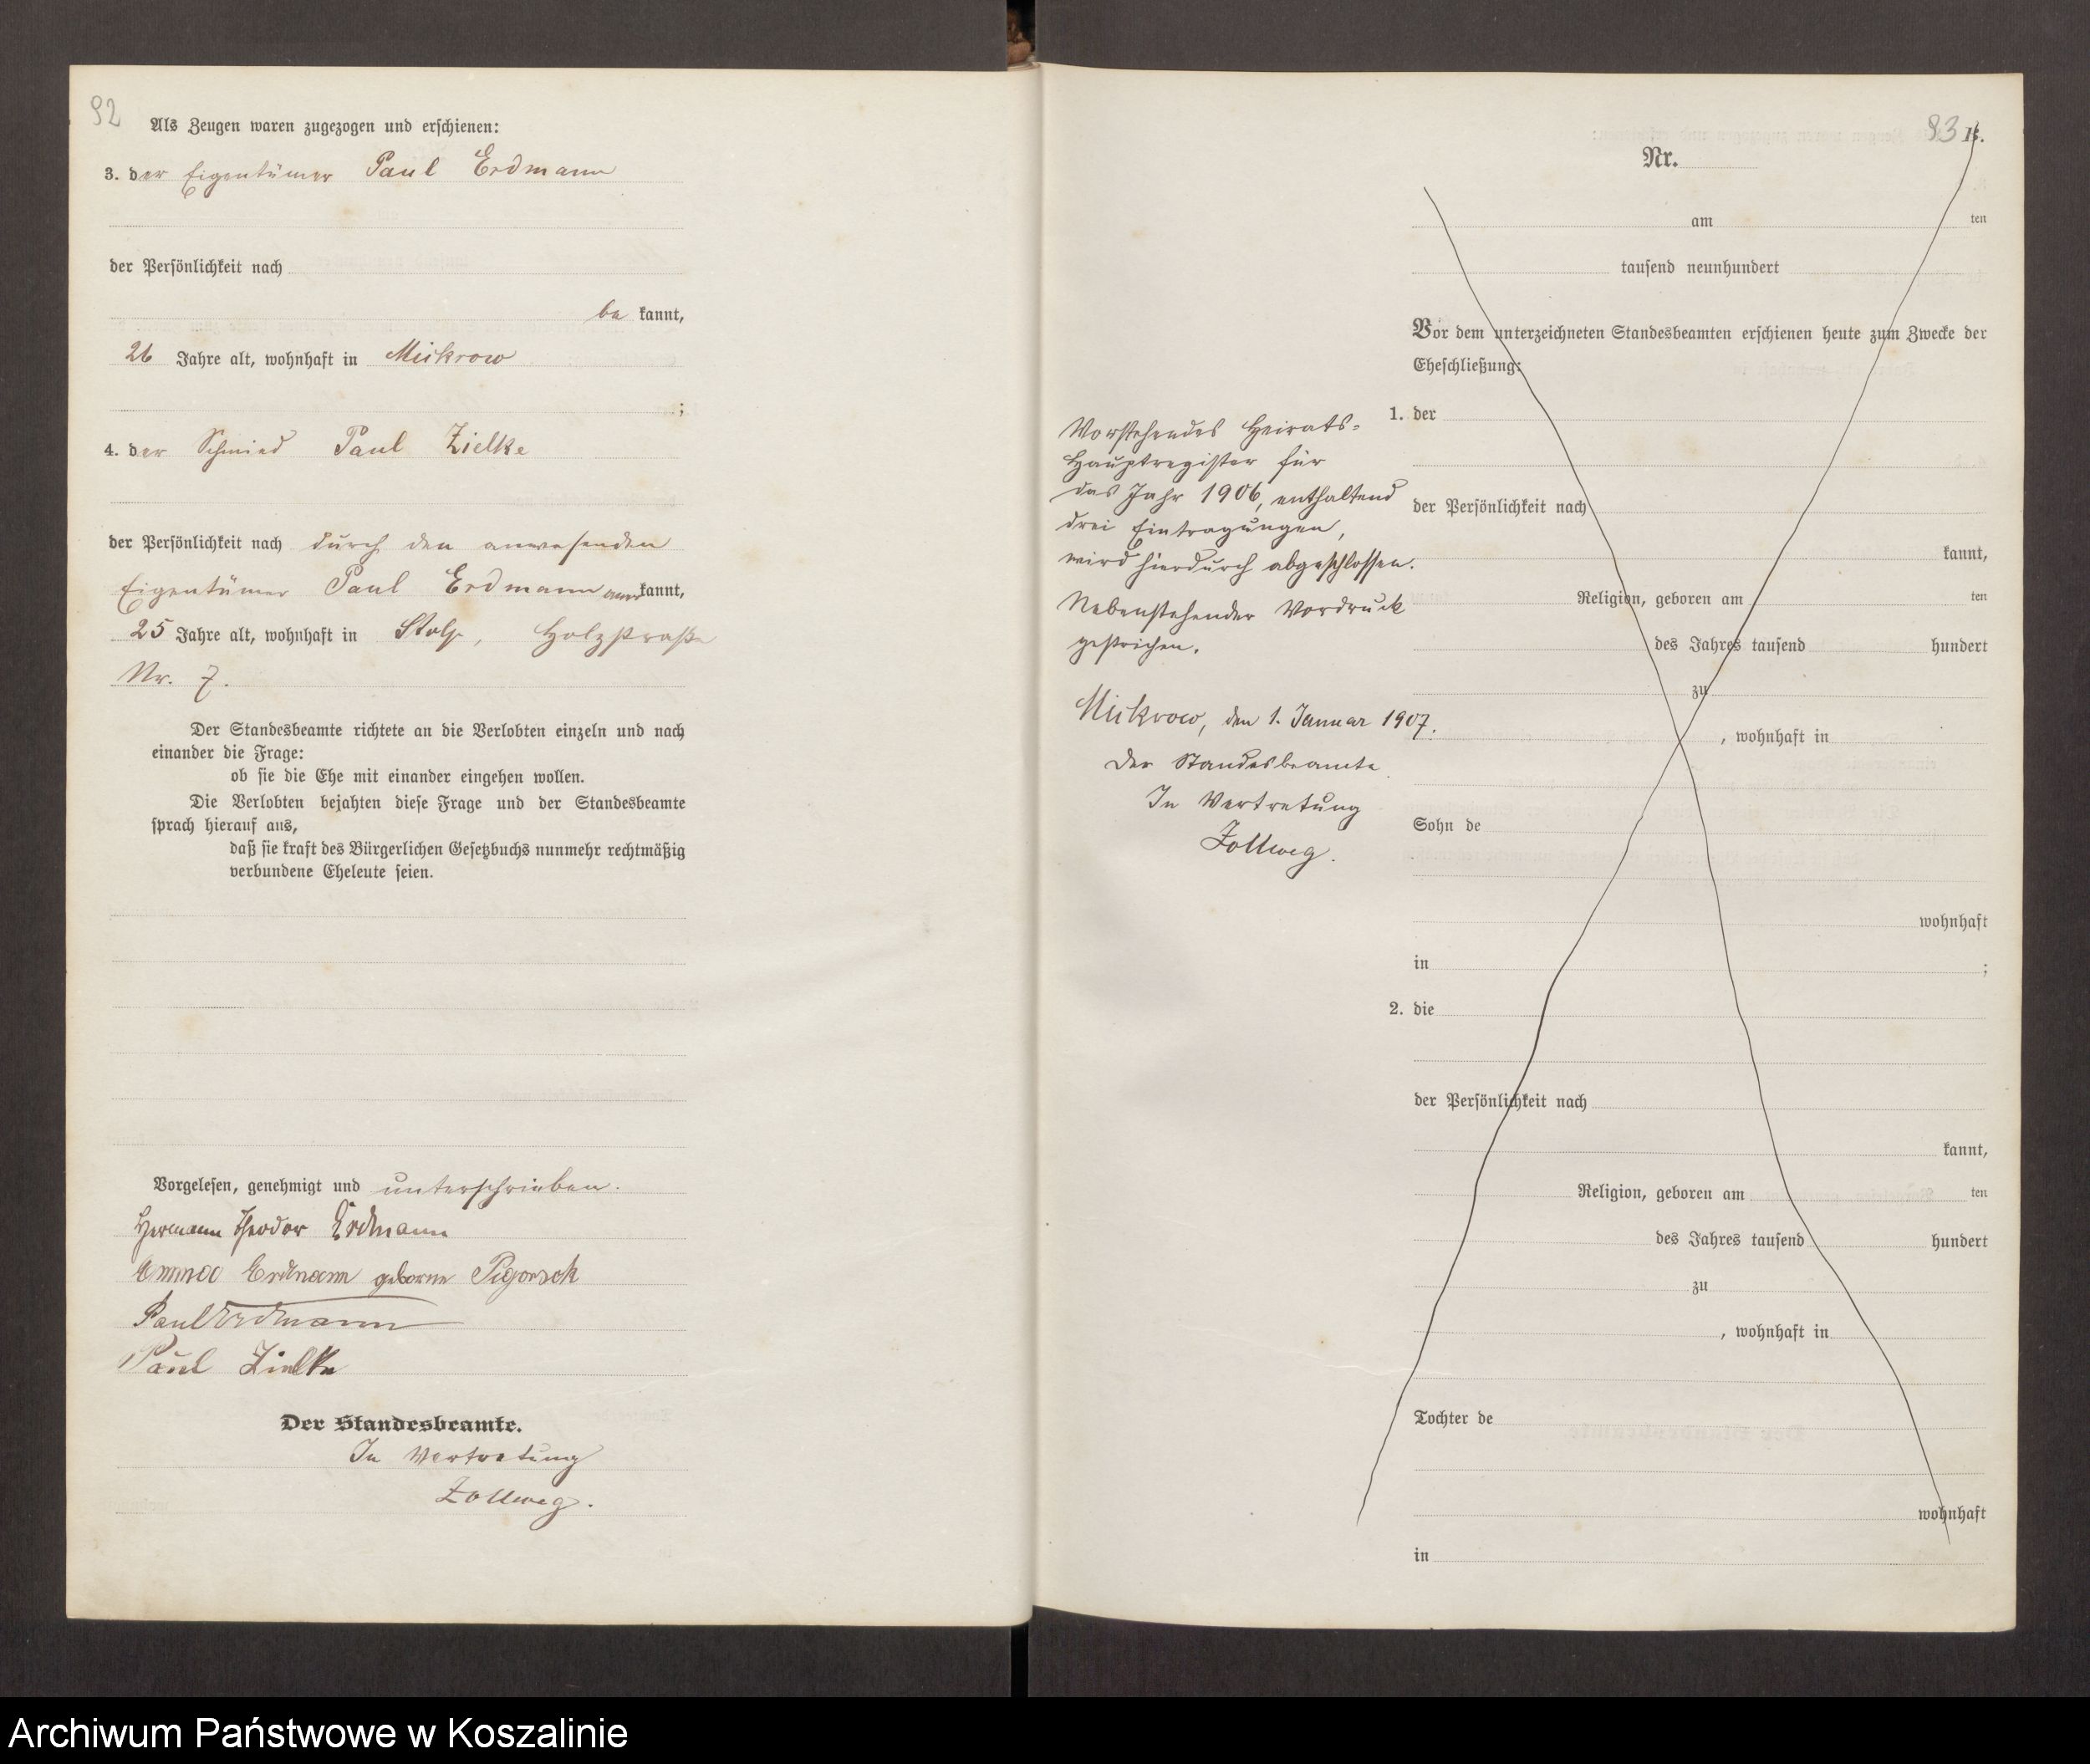 92
Als Zeugen waren zugezogen und erschienen:
3. der Eigentümer Paul Erdmann
der Persönlichkeit nach
be kannt,
26 Jahre alt, wohnhaft in Mickrow
;
4. der Schmied Paul Zielke
der Persönlichkeit nach durch den anwesenden
Eigentümer Paul Erdmann anerkannt,
25 Jahre alt, wohnhaft in Stolp, Holzstraße
Nr. 7.
Der Standesbeamte richtete an die Verlobten einzeln und nach
einander die Frage:
ob sie die Ehe mit einander eingehen wollen.
Die Verlobten bejahten diese Frage und der Standesbeamte
sprach hierauf aus,
daß sie kraft des Bürgerlichen Gesetzbuchs nunmehr rechtmäßig
verbundene Eheleute seien.
Vorgelesen, genehmigt und unterschrieben.
Hermann Theodor Erdmann
Anna Erdmann geborne Pigorsch
Paul Erdmann
Paul Zielke
Der Standesbeamte.
In Vertretung
Zollweg.
93 B.
Nr.
am ten
tausend neunhundert
Vor dem unterzeichneten Standesbeamten erschienen heute zum Zwecke der
Eheschließung:
1. der
der Persönlichkeit nach
kannt,
Religion, geboren am ten
des Jahres tausend hundert
zu
, wohnhaft in
Sohn de
wohnhaft
in ;
2. die
der Persönlichkeit nach
kannt,
Religion, geboren am ten
des Jahres tausend hundert
zu
, wohnhaft in
Tochter de
wohnhaft
in
Vorstehendes Heirats-
Hauptregister für
das Jahr 1906, enthaltend
drei Eintragungen,
wird hierdurch abgeschlossen.
Nebenstehender Vordruck
gestrichen.
Mickrow, den 1. Januar 1907.
Der Standesbeamte
In Vertretung
Zollweg.
Archiwum Państwowe w Koszalinie